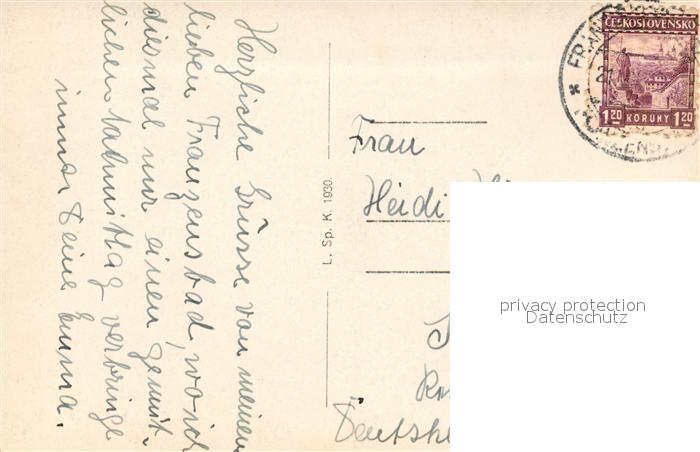 Herzliche Grüsse von meinem
lieben Franzensbad, wo ich
diesmal nur einen gemüt-
lichen Nachmittag verbringe
immer Deine Emma.
L. Sp. K. 1930.
Frau
Heidi
Deutschl
ČESKOSLOVENSKO
1 20 KORUNY 1 20
FRAN
privacy protection
Datenschutz